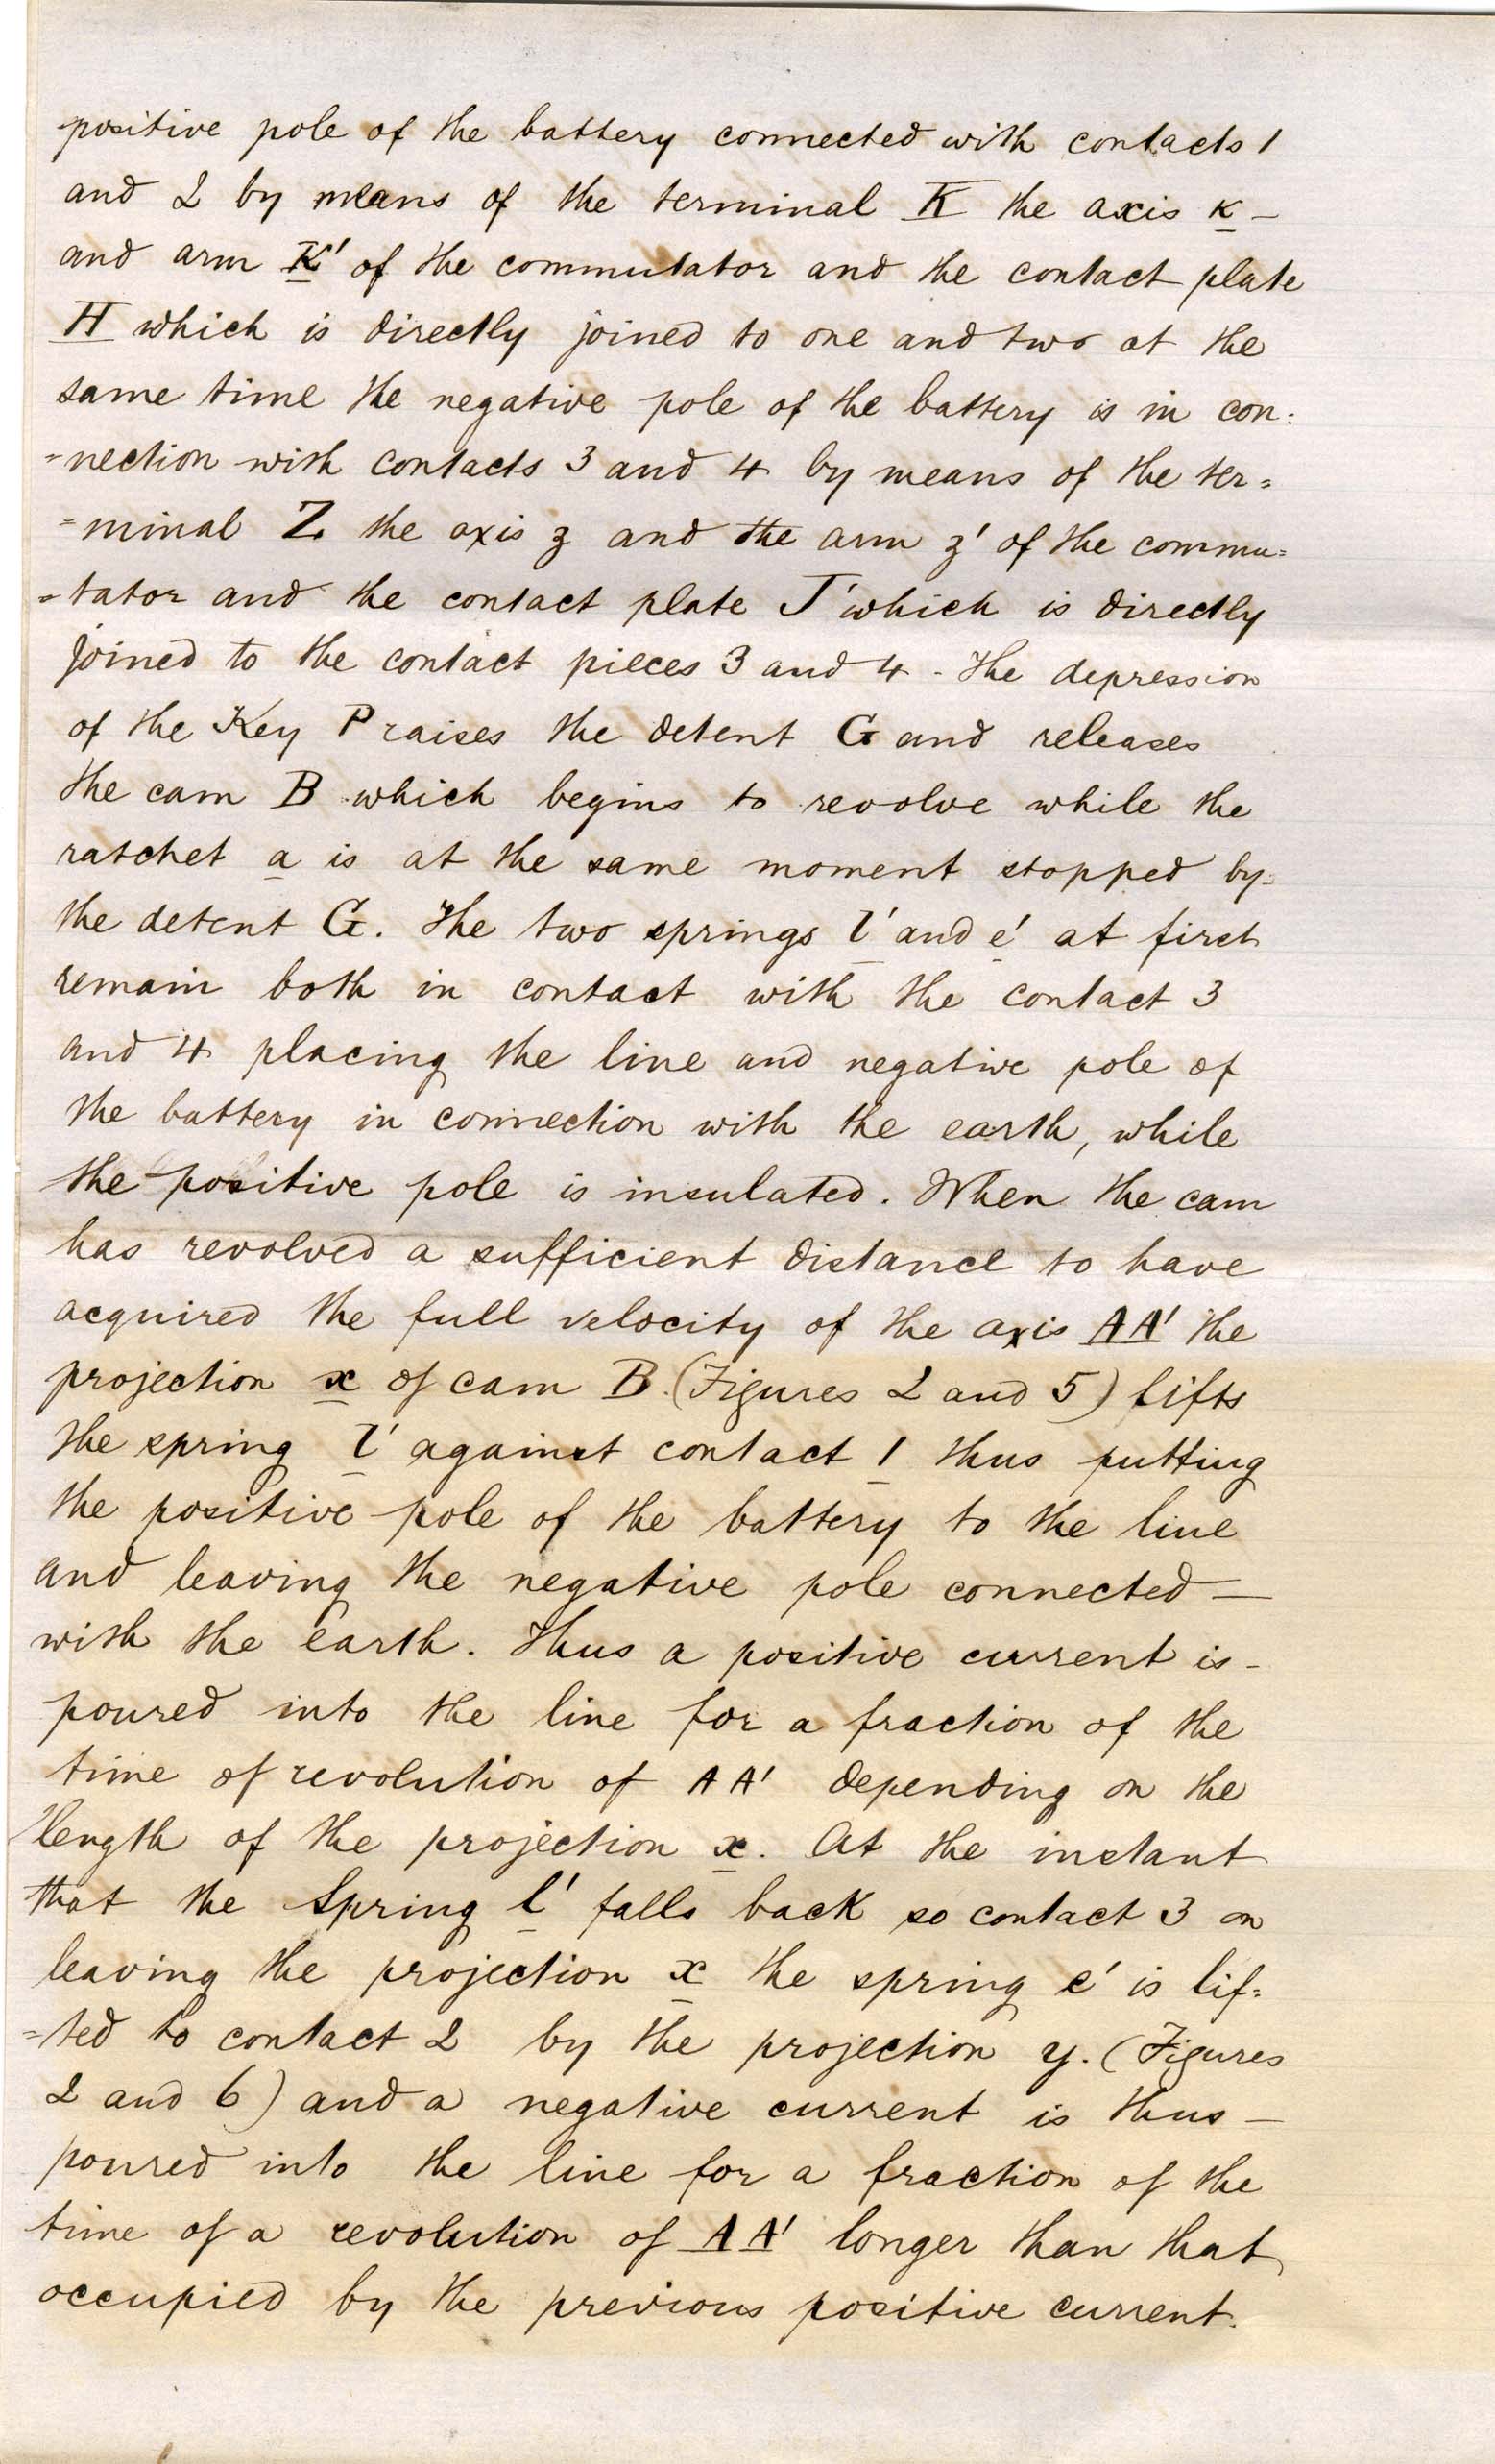 positive pole of the battery connected with contacts 1
and 2 by means of the terminal K the axis k –
and arm K' of the commutator and the contact plate
H which is directly joined to one and two at the
same time the negative pole of the battery is in con:
=nection with contacts 3 and 4 by means of the ter=
=minal Z the axis z and the arm z' of the commu=
=tator and the contact plate J' which is directly
joined to the contact pieces 3 and 4 - The depression
of the Key P raises the detent G and releases
the cam B which begins to revolve while the
ratchet a is at the same moment stopped by
the detent G. The two springs l' and e' at first
remain both in contact with the contact 3
and 4 placing the line and negative pole of
the battery in connection with the earth, while
the positive pole is insulated. When the cam
has revolved a sufficient distance to have
acquired the full velocity of the axis AA' the
projection x of cam B. (Figures 2 and 5) lifts
the spring l' against contact 1 thus putting
the positive pole of the battery to the line
and leaving the negative pole connected –
with the earth. Thus a positive current is –
poured into the line for a fraction of the
time of revolution of AA' depending on the
length of the projection x. At the instant
that the Spring l' falls back so contact 3 on
leaving the projection x the spring e' is lif=
=ted to contact 2 by the projection y. (Figures
2 and 6) and a negative current is thus –
poured into the line for a fraction of the
time of a revolution of AA' longer than that
occupied by the previous positive current.